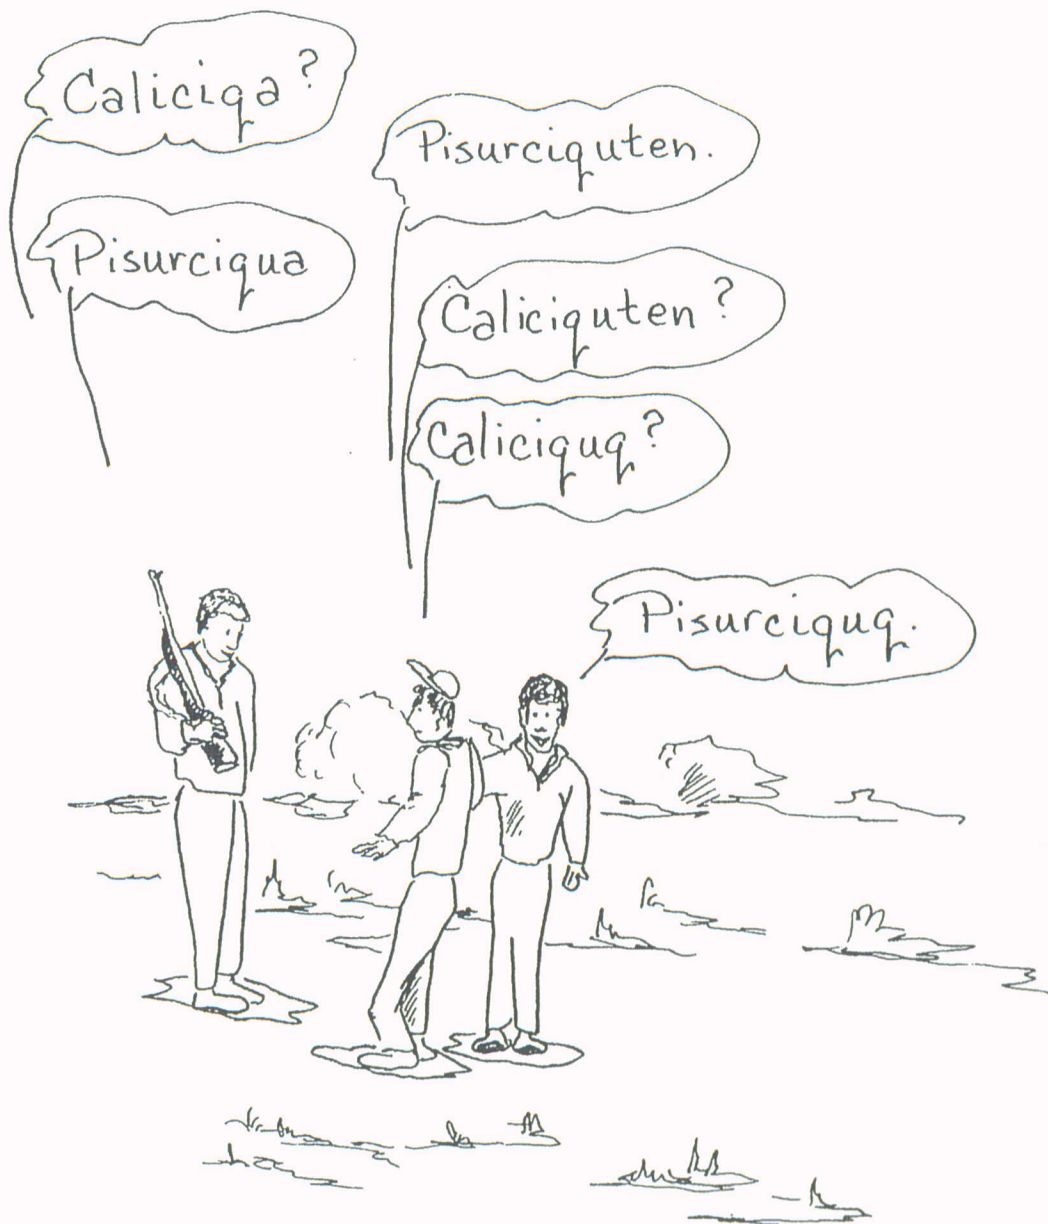 Caliciqa?
Pisurciqua
Pisurciquten.
Caliciquten?
Caliciquq?
Pisurciquq.